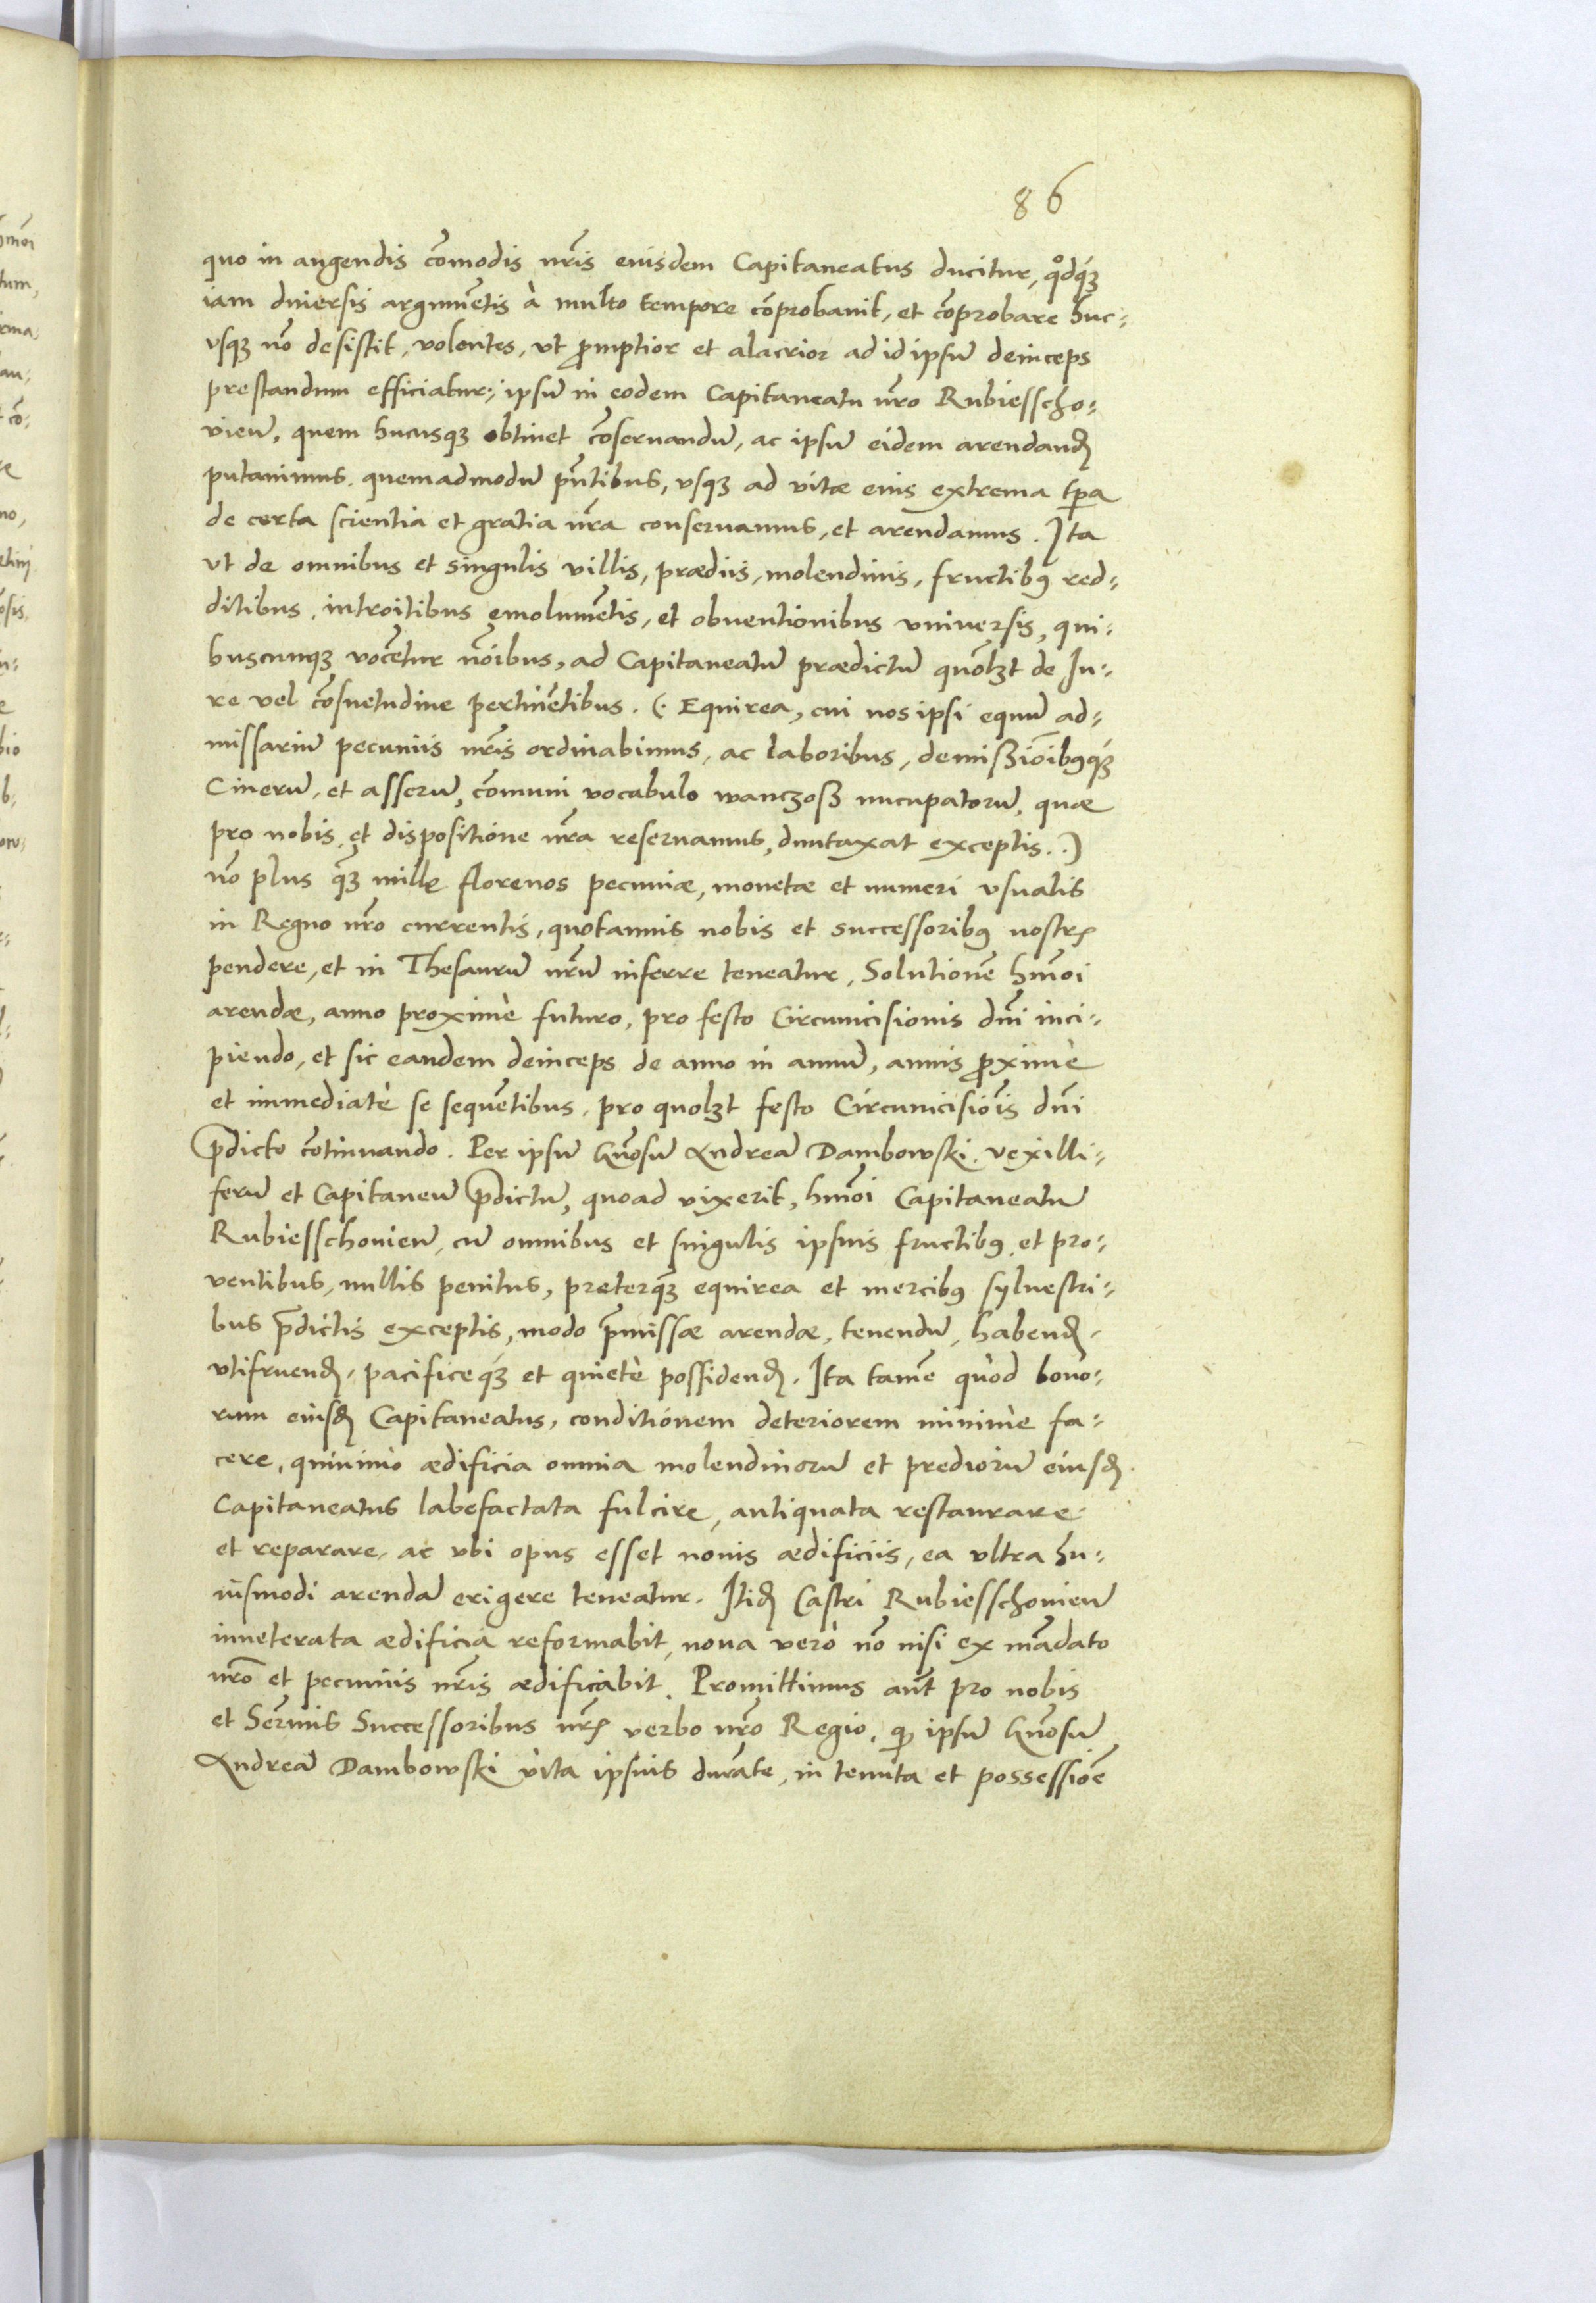 86
quo in augendis cõmodis nr̃is euisdem Capitaneatus ducitur, qͦdqúꝫ
iam diuersis argumẽtis à multo tempore cõprobauit, et cõprobare huc-
vsqꝫ nõ desistit, volentes, vt ꝓmptior et alacrior ad id ipsũ deinceps
prestandum efficiatur, ipsũ in eodem Capitaneatu nr̃o Rubiesscho-
vieñ, quem hucusqꝫ obtinet cõseruandũ, ac ipsũ eidem arendanđ
putauimus. quemadmodũ pñtibus, vsqꝫ ad vitæ eius extrema tp̃a
de certa scientia et gratia nr̃a conseruamus, et arendamus. Ita
vt de omnibus et singulis villis, prædiis, molendinis, fructibꝰ red-
ditibus, introitibus emolumẽtis, et obuentionibus vniuersis, qui-
buscunqꝫ vocẽtur nõibus, ad Capitaneatũ prædictũ quõlꝫt de Iu-
re vel cõsuetudine pertinẽtibus. (. Equirea, cui nos ipsi equũ ad-
missariũ pecuniis nr̃is ordinabimus, ac laboribus, demißiõibꝰqúꝫ
Cinerũ, et asserũ, cõmuni vocabulo wanczoß nucupatorũ, quæ
pro nobis et dispositione nr̃a reseruamus, duntaxat exceptis. .)
nõ plus qꝫ̃ mille florenos pecuniæ, monetæ et numeri vsualis
in Regno nr̃o currentis, quotannis nobis et successoribꝰ nostrꝭ
pendere, et in Thesaurũ nr̃um inferre teneatur, Solutionẽ hmõi
arendæ, anno proximè futuro, pro festo Circumcisionis dñi inci-
piendo, et sic eandem deinceps de anno in annũ, annis ꝓximè
et immediatè se sequẽtibus, pro quolꝫt festo Circumcisiõis dñi
p̃dicto cõtinuando. Per ipsũ Gñosũ Andreã Dambowski vexilli-
ferũ et Capitaneũ p̃dictũ, quoad vixerit, hmõi Capitaneatũ
Rubiesschovieñ, cũ omnibus et singulis ipsius fructibꝰ, et pro-
ventibus, nullis penitus, preterqꝫ̃ equirea et mercibꝰ syluestri-
bus p̃dictis exceptis, modo p̃missæ arendæ, tenendũ, habenđ,
vtifruenđ, pacificeqúꝫ et quietè possidenđ. Ita tamẽ quòd bono-
rum eiusđ Capitaneatus, conditionem deteriorem minimè fa-
cere, quinimò ædificia omnia molendinorũ et prediorũ eiusđ
Capitaneatus labefactata fulcire, antiquata restaurare
et reparare, ac vbi opus esset nouis ædificiis, ea vltra hu-
iusmodi arendã erigere teneatur. Itiđ Castri Rubiesschovieñ
inueterata ædificia reformabit, noua verò nõ nisi ex mãdato
nr̃o et pecuniis nr̃is ædificabit. Promittimus aũt pro nobis
et Serm̃is Successoribus nr̃ꝭ verbo nr̃o Regio, ꝙ ipsũ Gñosũ
Andreã Dambowski vita ipsius durãte, in tenuta et possessiõe